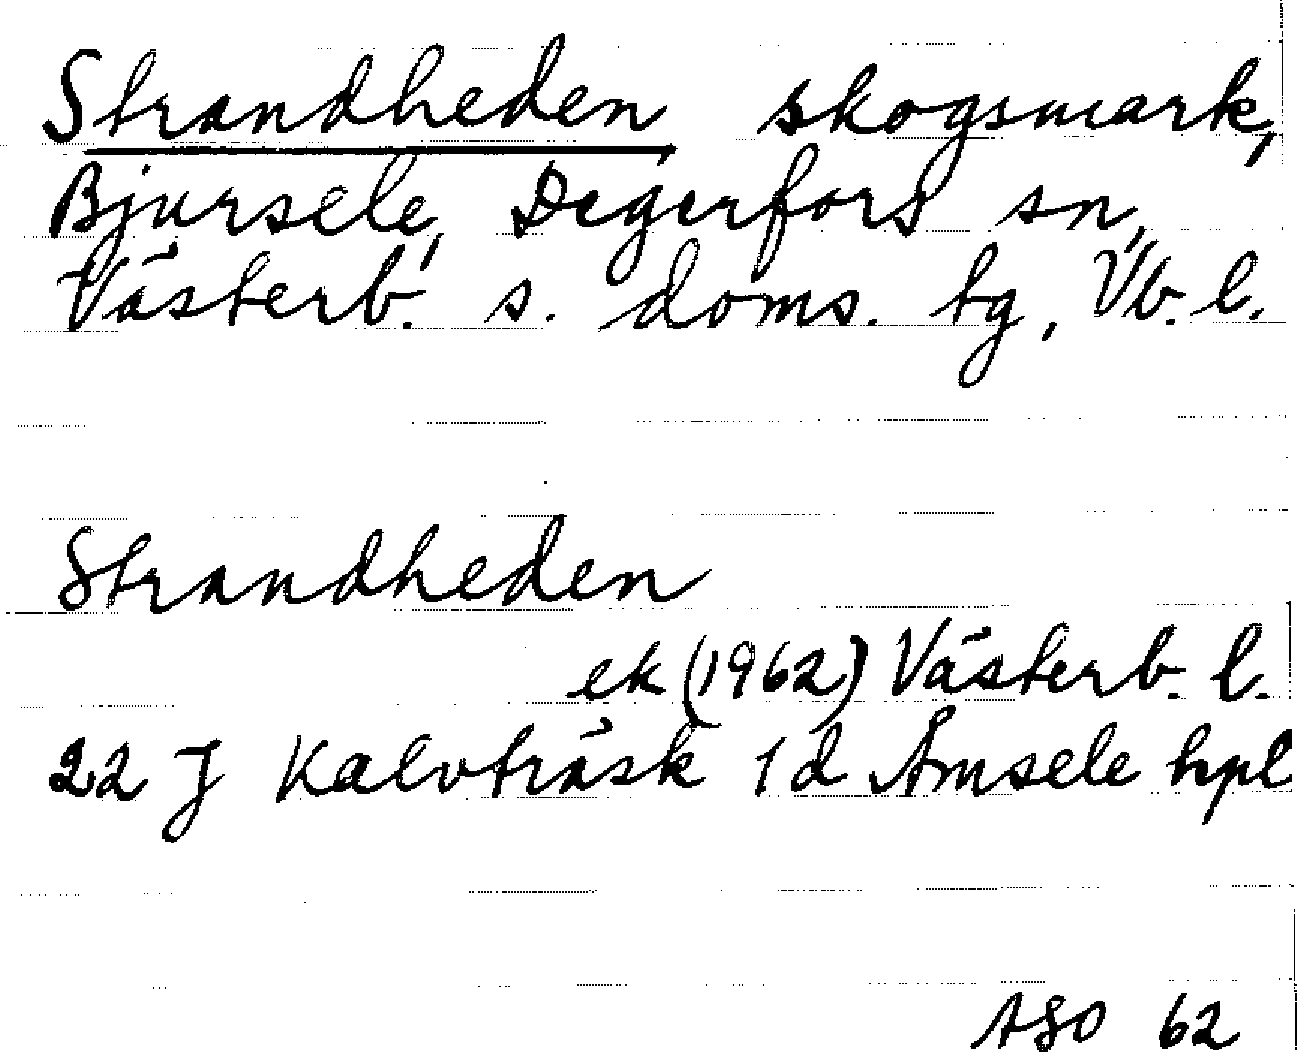 Strandheden, skogsmark,
Bjursele, Degerfors sn,
Västerb. s. doms. tg, Vb. l.
Strandheden
ek (1962) Västerb. l.
22 J Kalvträsk 1d Åmsele hpl
ASO 62